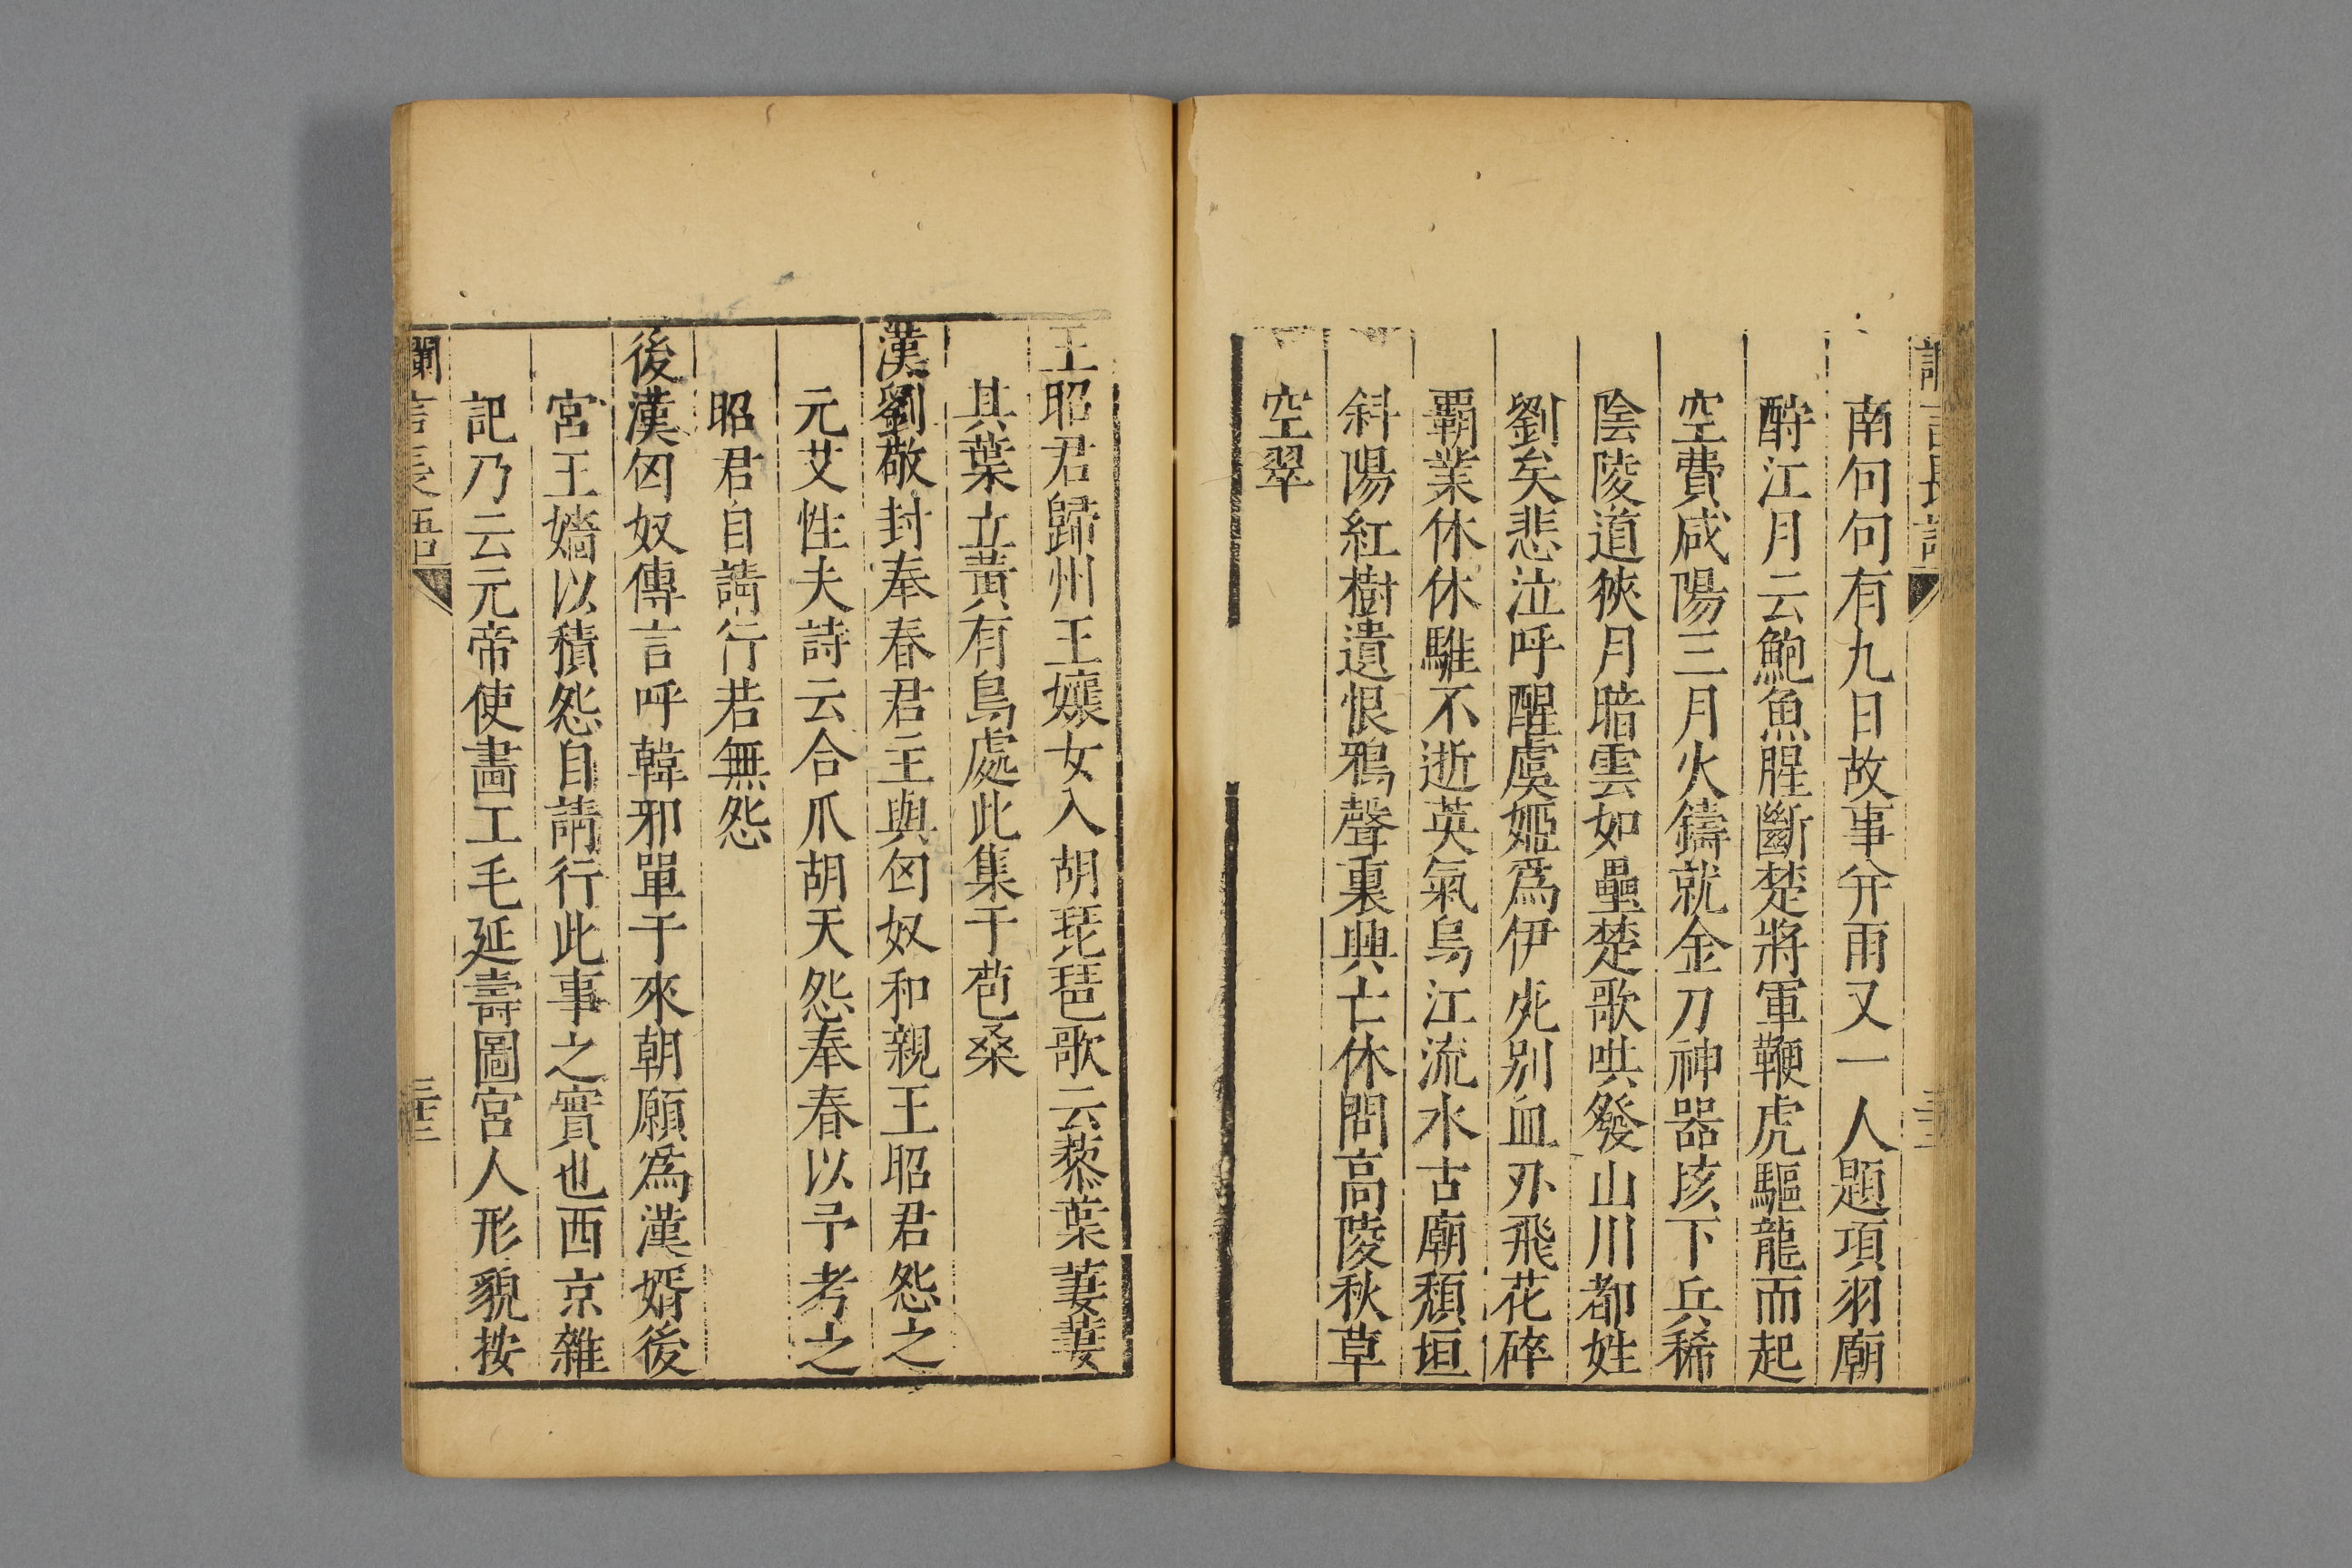 南句句有九日故事并雨又一人題項羽廟
酹江月云鮑魚腥斷楚將軍鞭虎驅龍而起
空費咸陽三月火鑄就金刀神器垓下兵稀
陰陵道狹月暗雲如壘楚歌哄發山川都姓
劉矣悲泣呼醒虞姬爲伊死别血刃飛花碎
覇業休休騅不逝英氣烏江流水古廟頽垣
斜陽紅樹遺恨鴉聲裏興亡休問高陵秋草
空翠
王昭君歸州王孃女入胡琵琶歌云蔡葉萋萋
其葉立黃有鳥處此集于苞桑
漢劉敬封奉春君主與匈奴和親王昭君怨之
元艾性夫詩云合爪胡天怨奉春以予考之
昭君自請行若無怨
後漢匈奴傳言呼韓邪單于來朝願爲漢婿後
宮王嬙以積怨自請行此事之實也西京雜
記乃云元帝使畵工毛延壽圖宮人形貌按
讕言長語